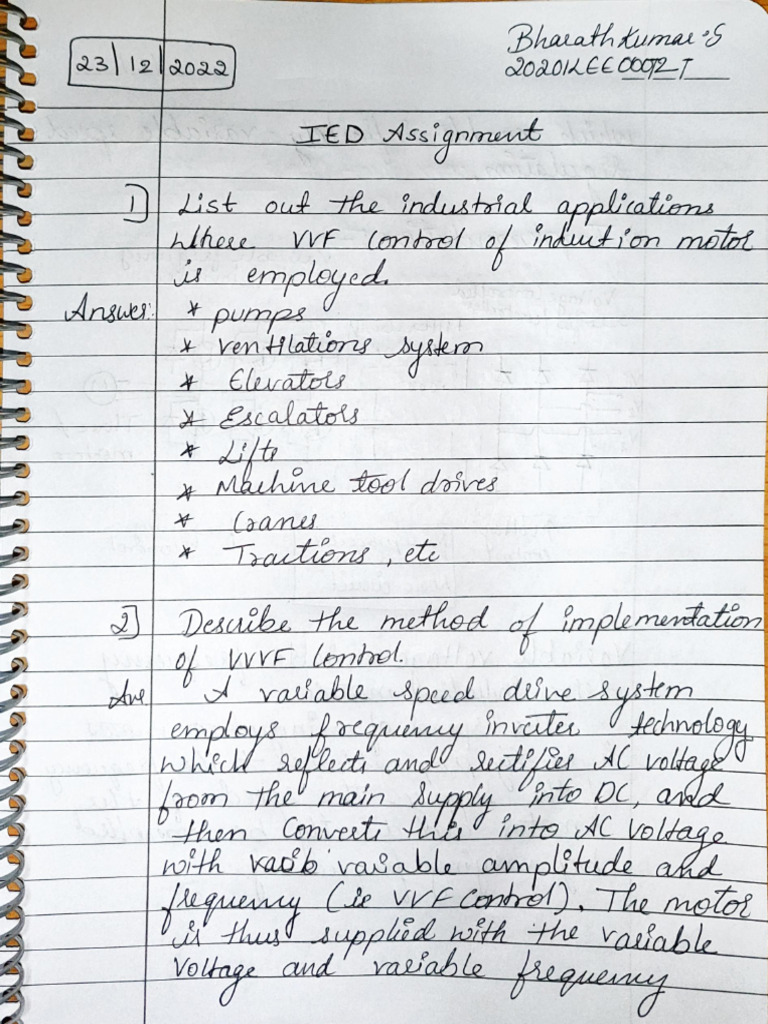 23/12/2022
Bharath Kumar.S
IED Assignment
1] List out the industrial applications
Where VVF control of induction motor
is employed.
Answer: * pumps
* ventilations system
* Elevators
* Escalators
* Lifts
* Machine tool drives
* Cranes
* Tractions, etc
2] Describe the method of implementation
of VVVF Control.
Ans A variable speed drive system
employs frequency inverter technology
which reflects and rectifies AC voltage
from the main supply into DC, and
then converts this into AC voltage
with variable amplitude and
frequency (ie VVF control). The motor
is thus supplied with the variable
voltage and variable frequency